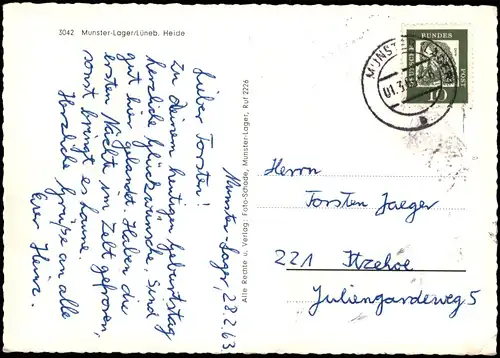 3042 Munster-Lager/Lüneb. Heide
Munster-Lager, 28.2.63
Lieber Torsten!
Zu deinem heutigen Geburtstag
herzliche Glückwünsche. Sind
gut hier gelandet. Haben die
ersten Nächte im Zelt gefroren,
sonst bringt es Laune.
Herzliche Grüße an alle
Euer Heinz.
Alle Rechte u. Verlag: Foto-Schade, Munster-Lager, Ruf 2226
DEUTSCHE
BUNDES
POST
MUNST
01.3
Herrn
Torsten Jaeger
221 Itzehoe
Juliengardeweg 5